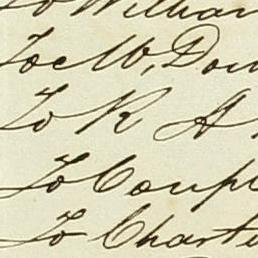 To William
To c W. Dou
To R A
To Coupl
To Charte